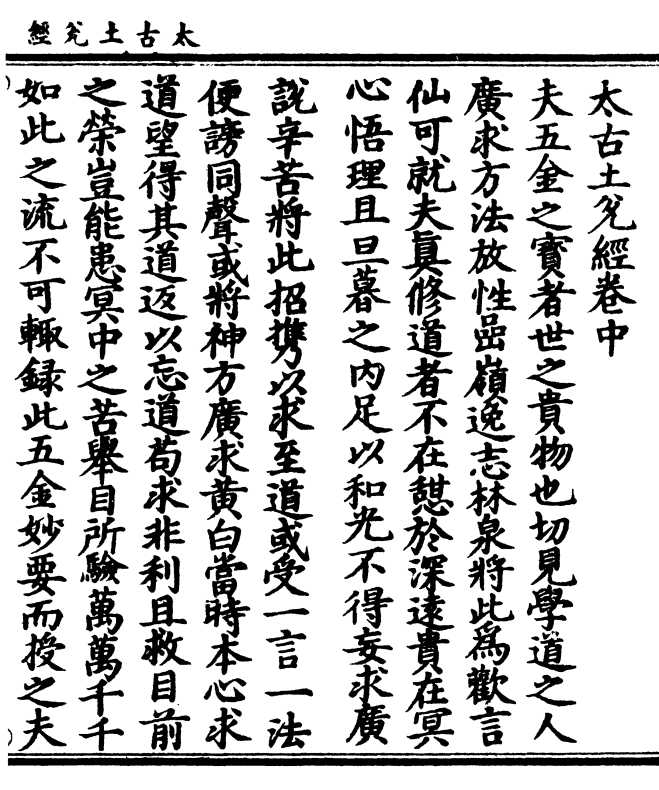 太古土兊經
太古土兊經卷中
夫五金之寶者世之貴物也切見學道之人
廣求方法放性嵒嶺逸志林泉將此為歡言
仙可就夫真修道者不在憇於深遠貴在冥
心悟理且旦暮之內足以和光不得妄求廣
說辛苦將此招攜以求至道或受一言一法
便謗同聲或將神方廣求黃白當時本心求
道望得其道返以忘道苟求非利且救目前
之榮豈能患冥中之苦舉目所驗萬萬千千
如此之流不可輙録此五金妙要而授之夫